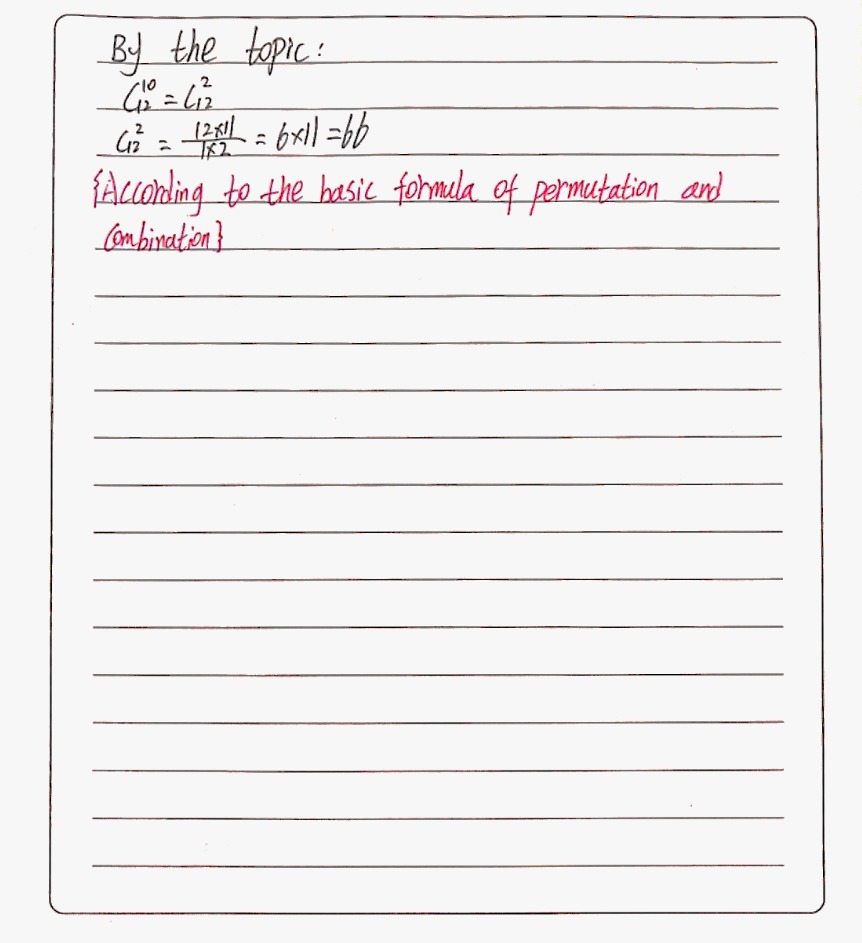 By the topic:
C₁₂¹⁰ = C₁₂²
C₁₂² = \frac{12×11}{1×2} = 6×11 = 66
{According to the basic formula of permutation and
Combination}